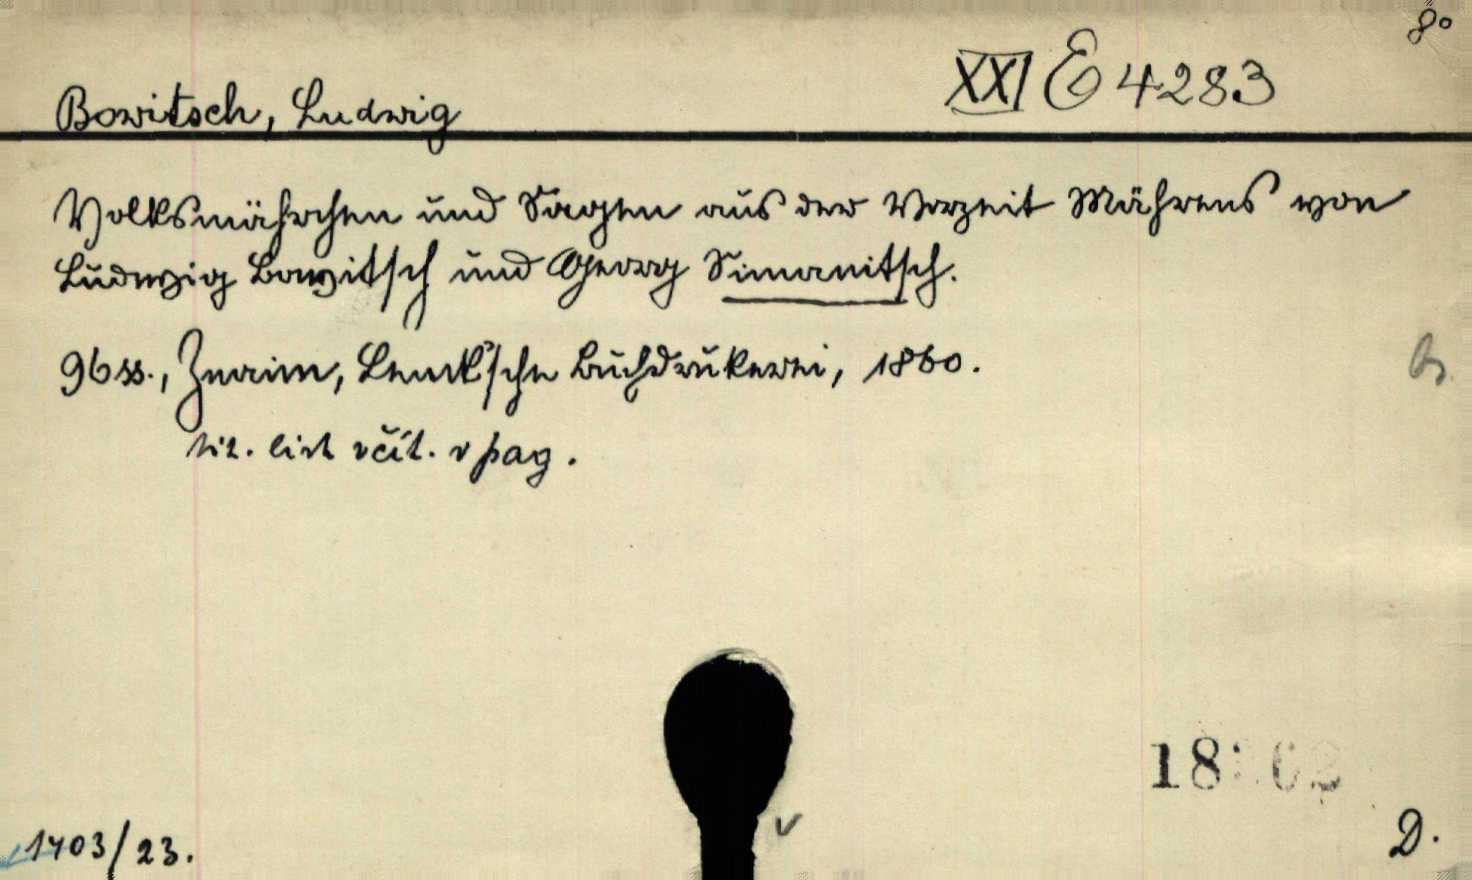 8°
XXI E 4283
Bowitsch, Ludwig
Volksmährchen und Sagen aus der Vorzeit Mährens von
Ludwig Bowitsch und Georg Simanitsch.
96 ss., Znaim, Lenk'sche Buchdrukerei, 1860.
tit. list včít. v pag.
18
1403/23.
D.